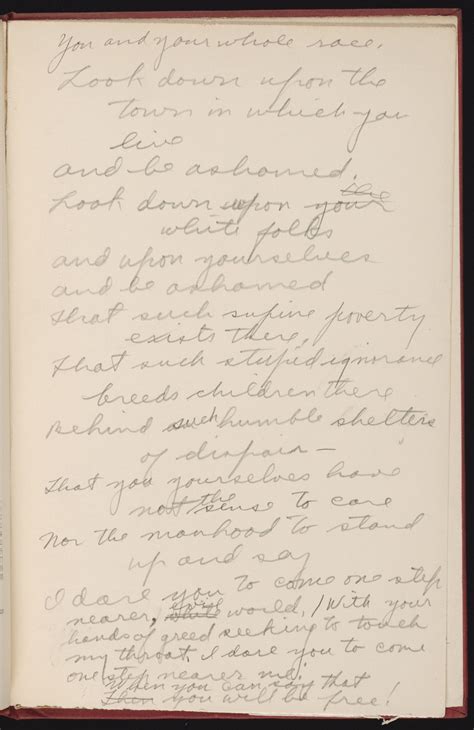 You and your whole race.
Look down upon the
town in which you
live
and be ashamed.
Look down upon your the
white folks
and upon yourselves
and be ashamed
That such supine poverty
exists there,
That such stupid ignorance
breeds children there
Behind such humble shelters
of dispair—
That you yourselves have
not the sense to care
Nor the manhood to stand
up and say
I dare you to come one step
nearer, evil world, / With your
hands of greed seeking to touch
my throat, I dare you to come
one step nearer me!
When you can say that
then you will be free!